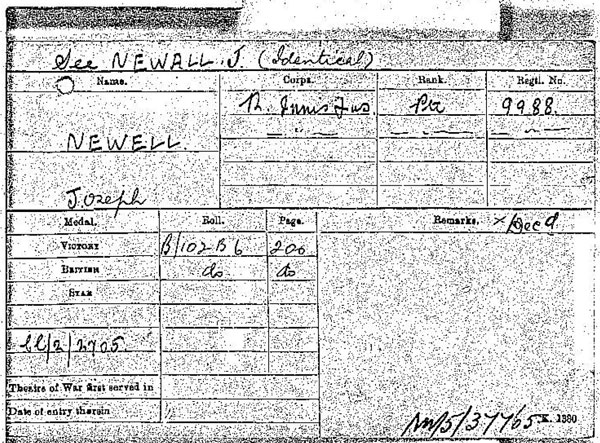 See NEWALL. J. (Identical)
Name. Corps. Rank. Regtl. No.
R. Innis Fus. Pte 9988.
— " — — " — — " —
NEWELL.
Joseph
Medal. Roll. Page. Remarks. x/Decd.
VICTORY B/102 B 6 200
BRITISH do do
STAR
2/2705.
Theatre of War first served in
Date of entry therein
K. 1380